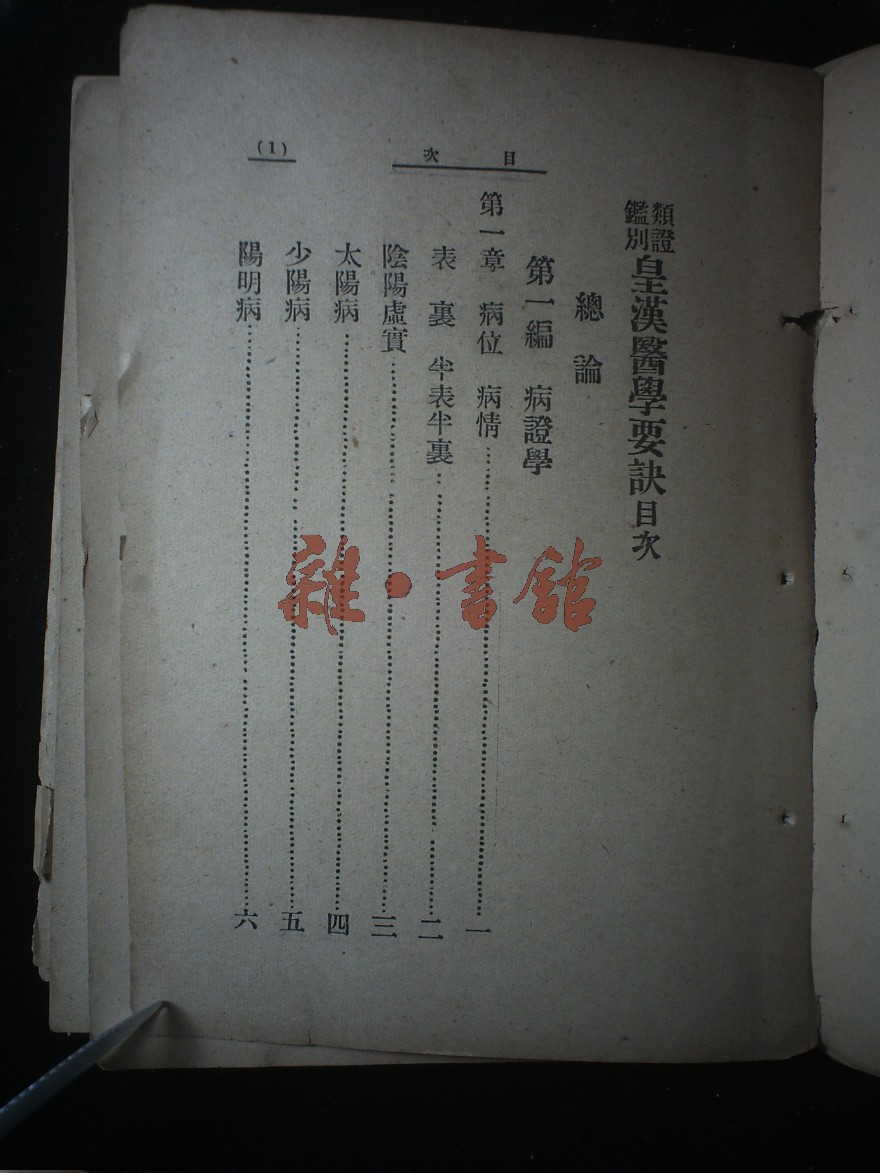 目次
(1)
類證鑑別皇漢醫學要訣目次
總論
第一編 病證學
第一章 病位 病情……一
表裏 半表半裏……二
陰陽虛實……三
太陽病……四
少陽病……五
陽明病……六
雜·書館